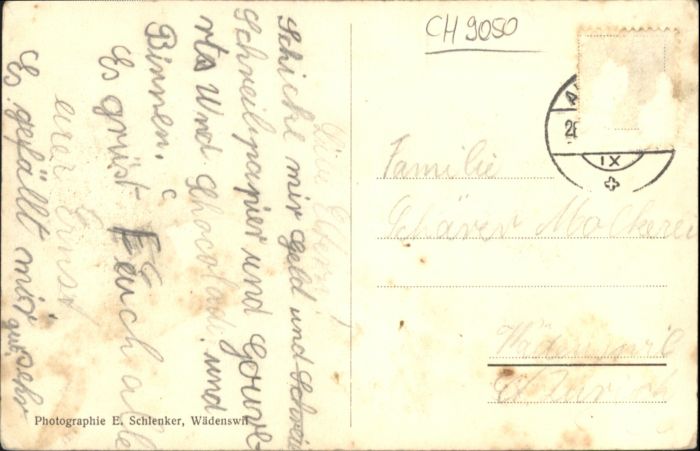 CH 9050
Libe Eltern!
Schicke mir Geld und Schrei
Schreibpapier und
und Schocolade und
Birnen.
Es grüst Euch alle
eurer Ernst
Es gefällt mir gut sehr
Familie
Schärer Molkerei
Wädenswil
Kt. Zürich
IX
Photographie E. Schlenker, Wädenswil